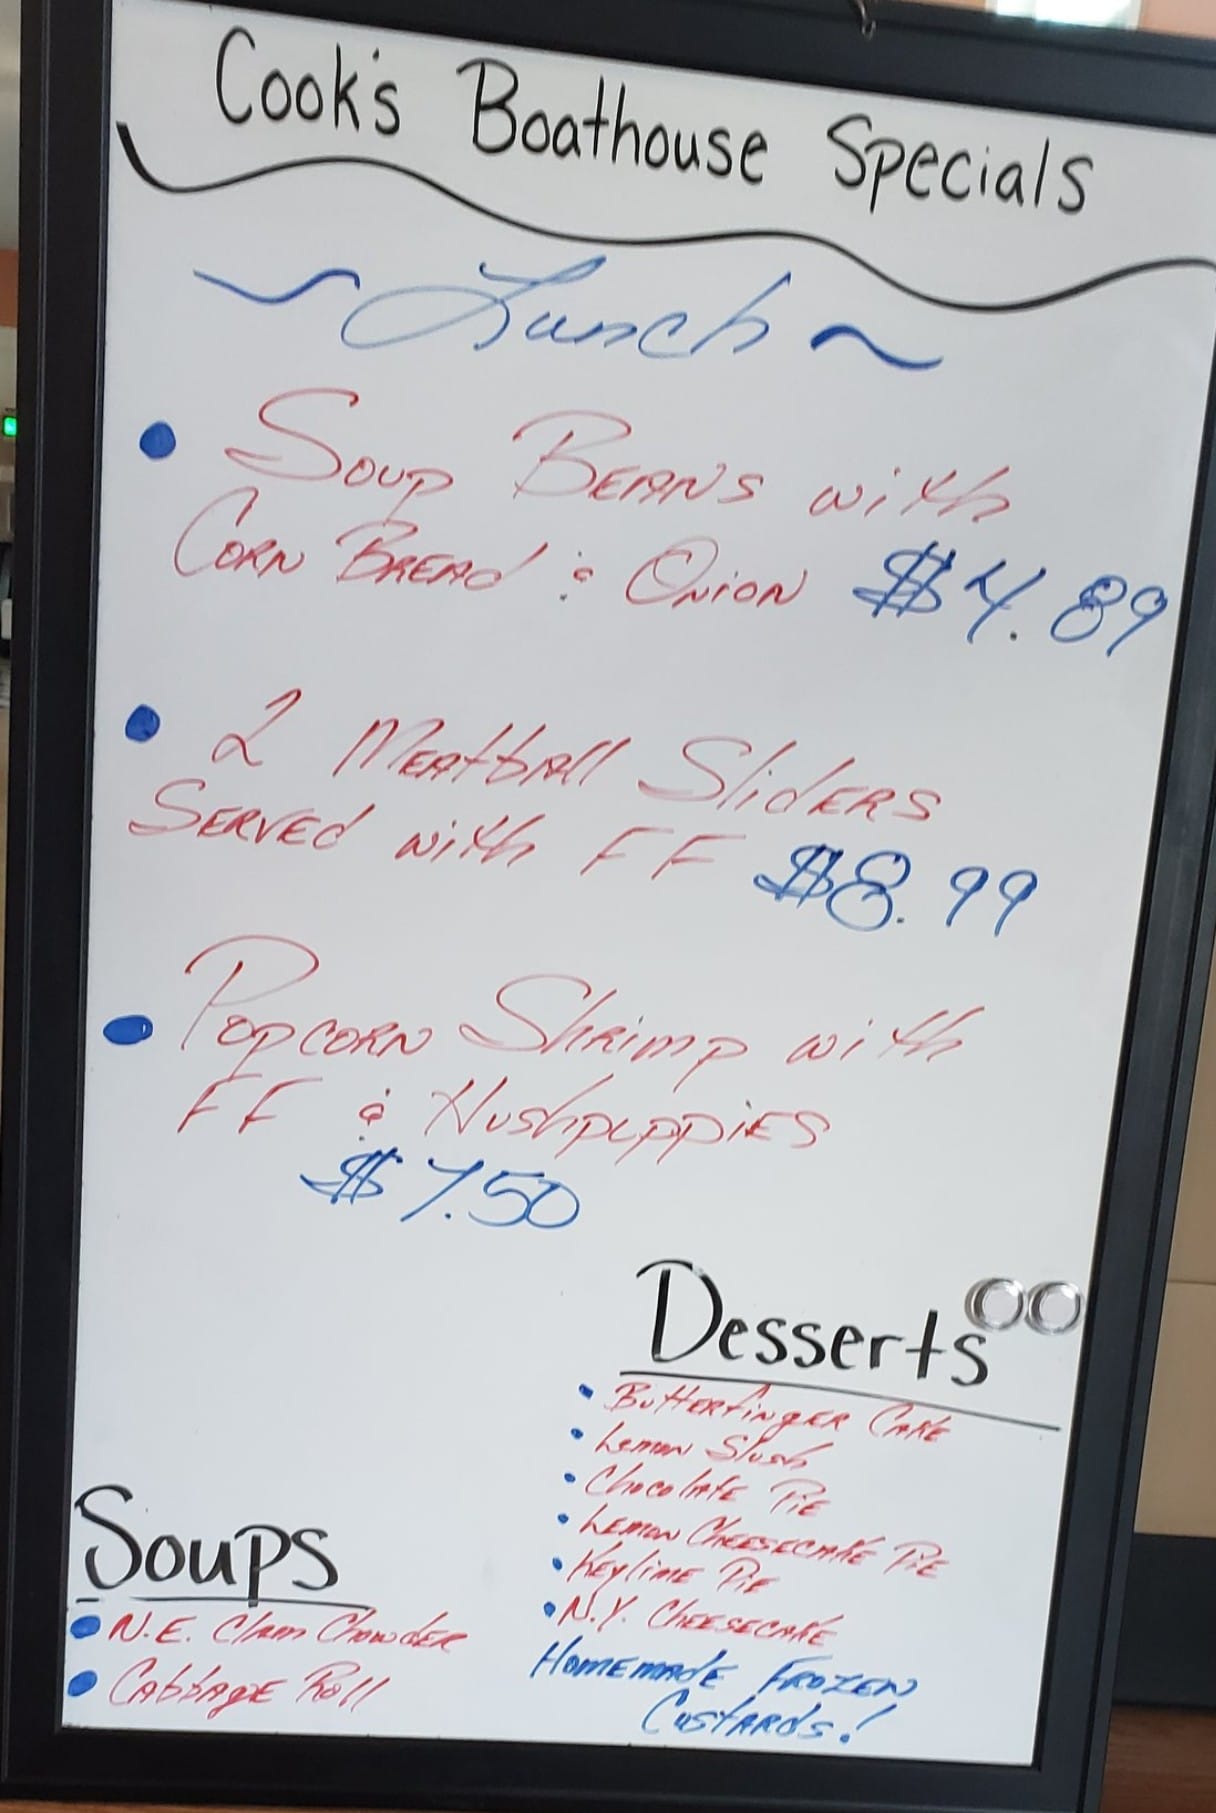 Cook's Boathouse Specials
~Lunch~
• Soup Beans with
Corn Bread & Onion $4.89
• 2 Meatball Sliders
Served with FF $8.99
• Popcorn Shrimp with
FF & Hushpuppies
$7.50
Desserts
• Butterfinger Cake
• Lemon Slush
• Chocolate Pie
• Lemon Cheesecake Pie
• Keylime Pie
• N.Y. Cheesecake
Homemade Frozen
Custards!
Soups
• N.E. Clam Chowder
• Cabbage Roll